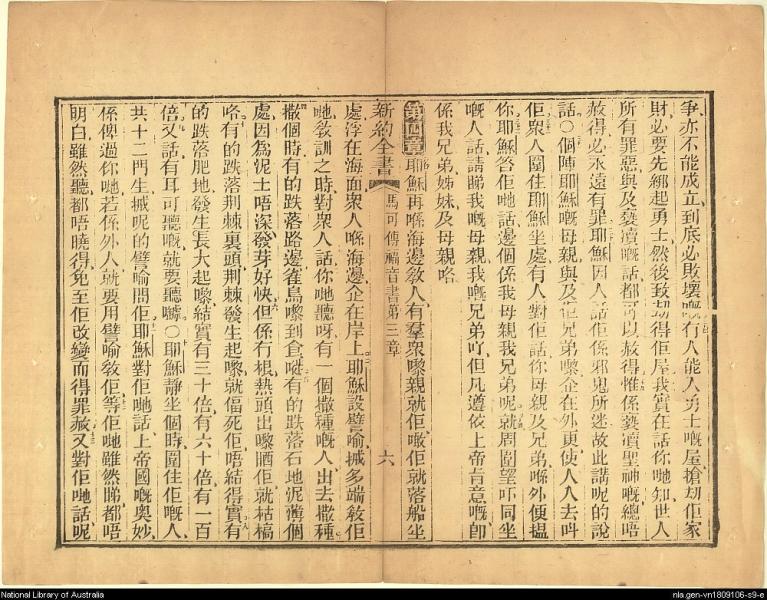 爭亦不能成立到底必敗壞嘅冇人能入勇士嘅屋搶刧佢家
財必要先綁起勇士然後致刧得佢屋我實在話你哋知世人
所有罪惡與及褻瀆嘅話都可以赦得惟係褻瀆聖神嘅總唔
赦得必永遠有罪耶穌因人話佢係邪鬼所迷故此講呢的說
話○個陣耶穌嘅母親與及佢兄弟嚟企在外更使人入去呌
佢衆人圍住耶穌坐處有人對佢話你母親及兄弟喺外便搵
你耶穌答佢哋話邊個係我母親我兄弟呢就周圍望吓同坐
嘅人話請睇我嘅母親我嘅兄弟吖但凡遵依上帝肯意嘅卽
係我兄弟姊妹及母親咯
第四章耶穌再喺海邊敎人有羣衆嚟親就佢噉佢就落船坐
新約全書 馬可傳福音書第三章 六
處浮在海面衆人喺海邊企在岸上耶穌設譬喻搣多端敎佢
哋敎訓之時對衆人話你哋聽呀有一個撒種嘅人出去撒種
撒個時有的跌落路邊雀鳥嚟到食嘥有的跌落石地泥薄個
處因爲泥土唔深發芽好快但係冇根熱頭出嚟晒佢就枯槁
咯有的跌落荆棘裏頭荆棘發生起嚟就偪死佢唔結得實有
的跌落肥地發生長大起嚟結實有三十倍有六十倍有一百
倍又話有耳可聽嘅就要聽嚹○耶穌靜坐個時圍住佢嘅人
共十二門生搣呢的譬喻問佢耶穌對佢哋話上帝國嘅奧妙
係俾過你哋若係外人就要用譬喻敎佢等佢哋雖然睇都唔
明白雖然聽都唔曉得免至佢改變而得罪赦又對佢哋話呢
National Library of Australia
nla.gen-vn1809106-s9-e